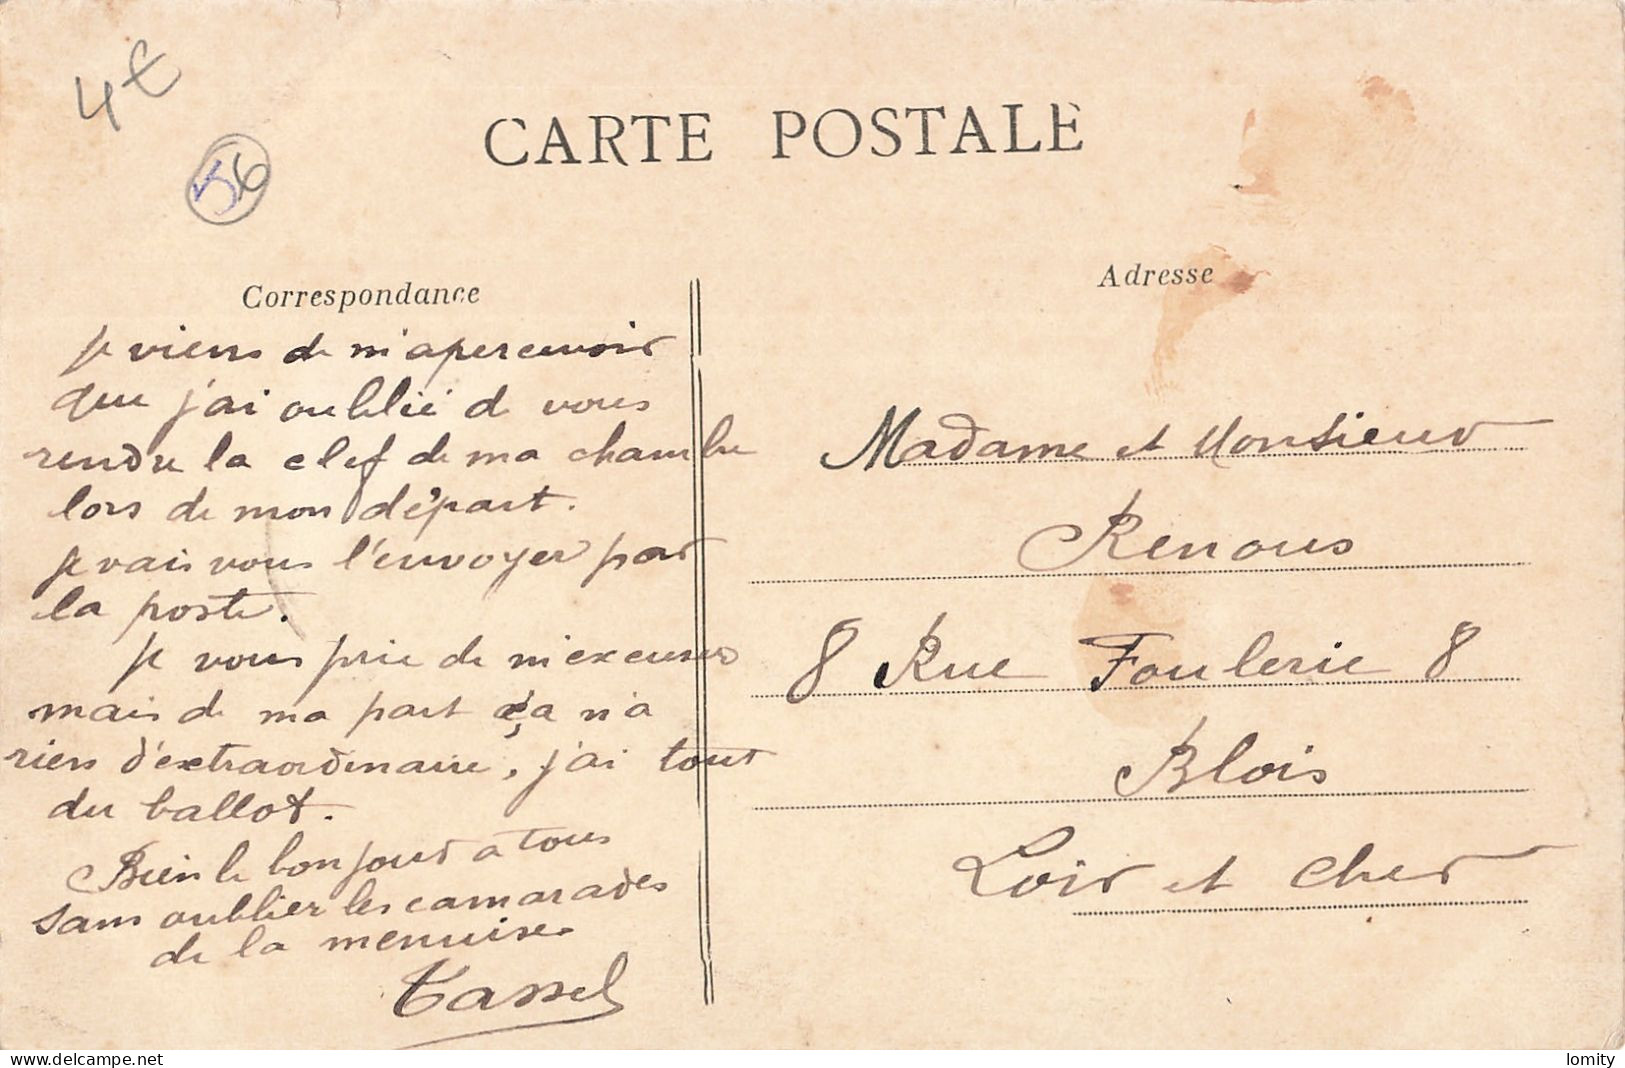 4€
56
CARTE POSTALE
Correspondance
Adresse
je viens de m'apercevoir
que j'ai oublié de vous
rendu la clef de ma chambre
lors de mon départ.
je vais vous l'envoyer par
la poste.
je vous prie de m'excuser
mais de ma part ça n'a
rien d'extraordinaire, j'ai tout
du ballot.
Bien le bonjour à tous
sans oublier les camarades
de la menuise
Tassel
Madame et Monsieur
Renous
8 Rue Foulerie 8
Blois
Loir et Cher
www.delcampe.net
lomity